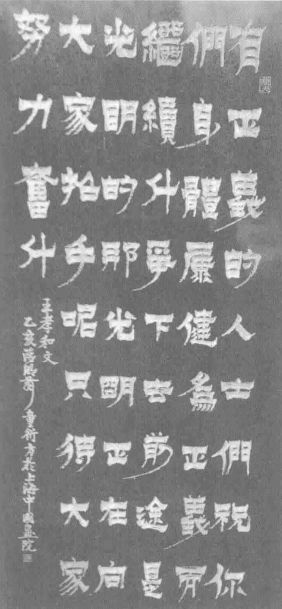 有正義的人士們祝你
們身體康健為正義而
繼續斗爭下去前途是
光明的那光明正在向
大家招手呢只待大家
努力奮斗
王孝和文
乙亥童衍方於上海中國畫院